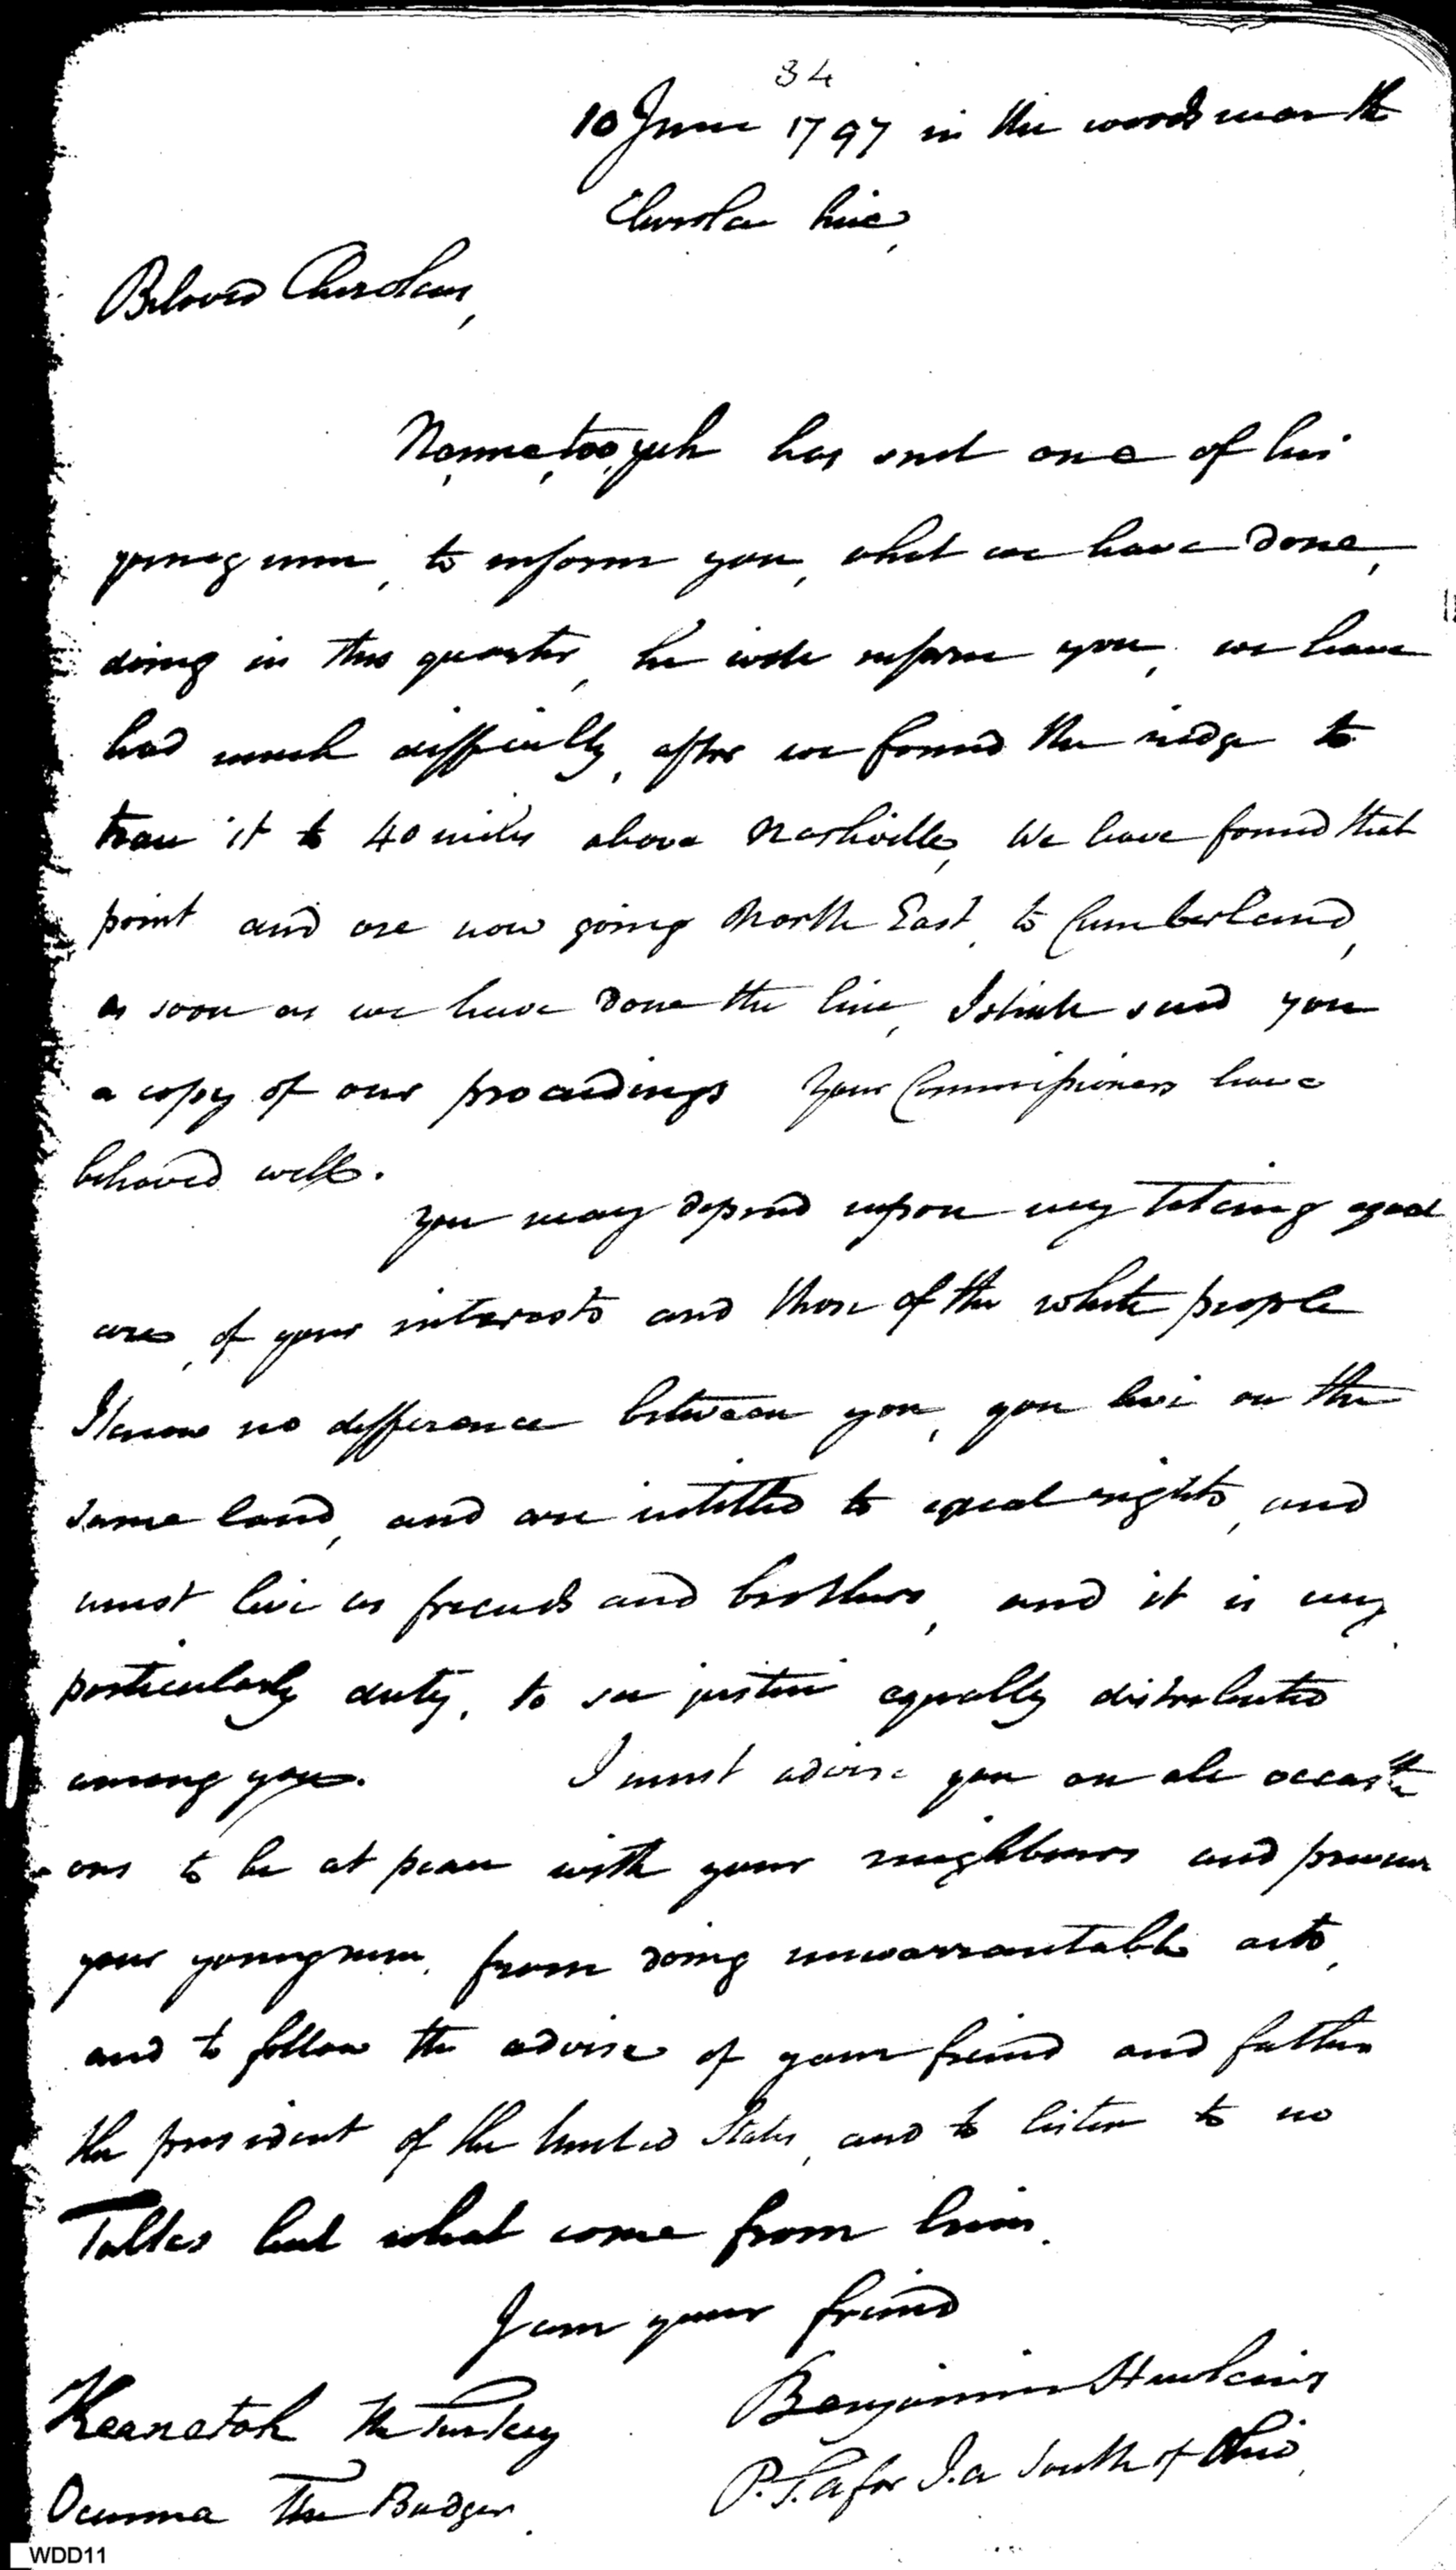 34
10 June 1797 in the woods near the
Cherokee line,
Beloved Cherokees,
Nannetooyuh has sent one of his
young men, to inform you, what we have done,
doing in this quarter, he will inform you, we have
had much difficulty, after we found the ridge to
trace it to 40 miles above Nashville, We have found that
point and are now going North East, to Cumberland,
as soon as we have done the line, I shall send you
a copy of our proceedings Your Commissioners have
behaved well.
You may depend upon my taking equal
care, of your interests and those of the white people
I know no difference between you, you live on the
same land, and are intitled to equal rights, and
must live as friends and brothers, and it is my
particularly duty, to see justice equally distributed
among you. I must advise you on all occasi
ons to be at peace with your neighbours and
your young men, from doing unwarrantable acts,
and to follow the advise of your friend and father
the president of the United States, and to listen to no
Talks but what come from him.
I am your friend
Benjamin Hawkins
P. T. A for I. a South of Ohio,
Keanetoh The Turkey
Ocunna The Badger.
WDD11